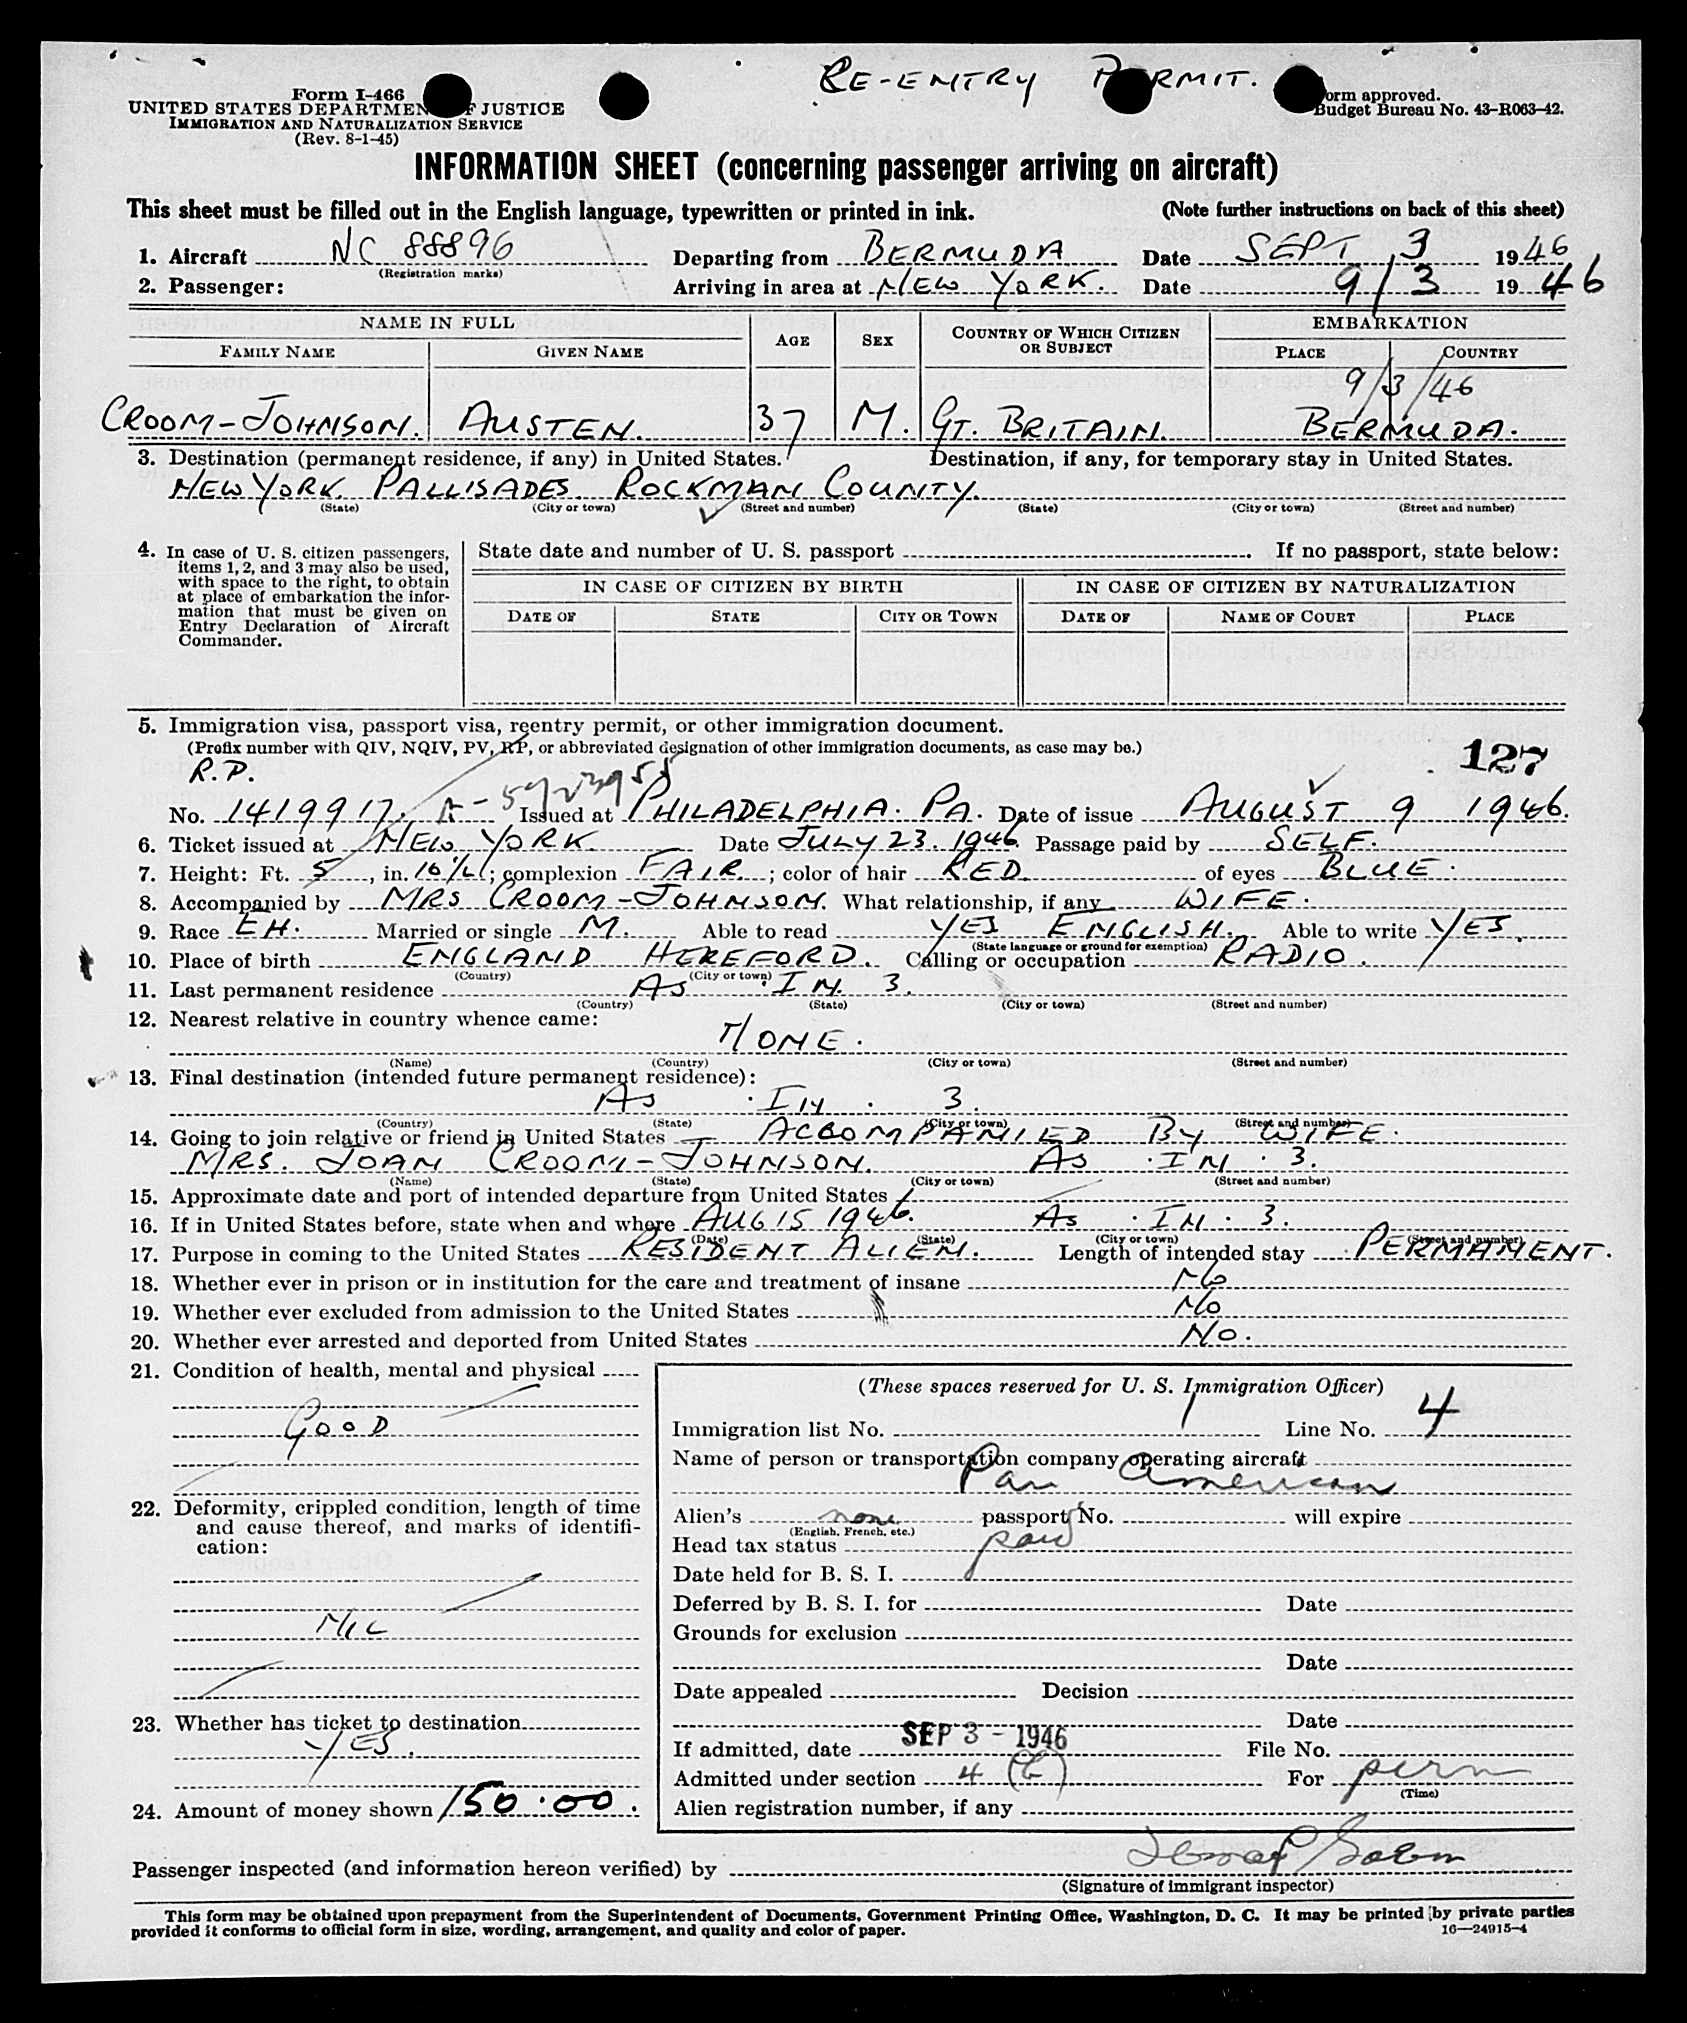 RE-ENTRY PERMIT.
Form I-466
UNITED STATES DEPARTMENT OF JUSTICE
IMMIGRATION AND NATURALIZATION SERVICE
(Rev. 8-1-45)
Form approved.
Budget Bureau No. 43-R063-42.
INFORMATION SHEET (concerning passenger arriving on aircraft)
This sheet must be filled out in the English language, typewritten or printed in ink. (Note further instructions on back of this sheet)
1. Aircraft NC 88896 Departing from BERMUDA Date SEPT 3 1946
(Registration marks)
2. Passenger: Arriving in area at NEW YORK. Date 9/3 1946
NAME IN FULL AGE SEX COUNTRY OF WHICH CITIZEN OR SUBJECT EMBARKATION
FAMILY NAME GIVEN NAME PLACE COUNTRY
9/3/46
CROOM-JOHNSON. AUSTEN. 37 M. GT. BRITAIN. BERMUDA.
3. Destination (permanent residence, if any) in United States. Destination, if any, for temporary stay in United States.
NEW YORK. PALLISADES. ROCKMAN COUNTY.
(State) (City or town) (Street and number) (State) (City or town) (Street and number)
4. In case of U. S. citizen passengers, items 1, 2, and 3 may also be used, with space to the right, to obtain at place of embarkation the information that must be given on Entry Declaration of Aircraft Commander.
State date and number of U. S. passport . If no passport, state below:
IN CASE OF CITIZEN BY BIRTH IN CASE OF CITIZEN BY NATURALIZATION
DATE OF STATE CITY OR TOWN DATE OF NAME OF COURT PLACE
5. Immigration visa, passport visa, reentry permit, or other immigration document.
(Prefix number with QIV, NQIV, PV, RP, or abbreviated designation of other immigration documents, as case may be.)
127
R.P.
No. 1419917. Issued at PHILADELPHIA. PA. Date of issue AUGUST 9 1946.
6. Ticket issued at NEW YORK. Date JULY 23. 1946 Passage paid by SELF.
7. Height: Ft. 5, in. 10½; complexion FAIR.; color of hair RED. of eyes BLUE.
8. Accompanied by MRS CROOM-JOHNSON. What relationship, if any WIFE.
9. Race EH. Married or single M. Able to read YES ENGLISH. Able to write YES.
(State language or ground for exemption)
10. Place of birth ENGLAND HEREFORD. Calling or occupation RADIO.
(Country) (City or town)
11. Last permanent residence AS. IN. 3.
(Country) (State) (City or town) (Street and number)
12. Nearest relative in country whence came:
NONE.
(Name) (Country) (City or town) (Street and number)
13. Final destination (intended future permanent residence):
AS. IN. 3.
(Country) (State) (City or town) (Street and number)
14. Going to join relative or friend in United States — ACCOMPANIED BY WIFE.
MRS. JOAN CROOM-JOHNSON. AS. IN. 3.
(Name) (State) (City or town) (Street and number)
15. Approximate date and port of intended departure from United States
16. If in United States before, state when and where AUG 15 1946. AS. IN. 3.
(Date) (State) (City or town) (Street and number)
17. Purpose in coming to the United States RESIDENT ALIEN. Length of intended stay PERMANENT.
18. Whether ever in prison or in institution for the care and treatment of insane NO
19. Whether ever excluded from admission to the United States NO
20. Whether ever arrested and deported from United States NO.
21. Condition of health, mental and physical
GOOD
22. Deformity, crippled condition, length of time and cause thereof, and marks of identification:
NIL
23. Whether has ticket to destination
YES.
24. Amount of money shown 150.00.
(These spaces reserved for U. S. Immigration Officer)
Immigration list No. 1 Line No. 4
Name of person or transportation company operating aircraft
Pan American
Alien's none passport No. will expire
(English, French, etc.)
Head tax status paid
Date held for B. S. I.
Deferred by B. S. I. for Date
Grounds for exclusion
Date
Date appealed Decision
Date
If admitted, date SEP 3 - 1946 File No.
Admitted under section 4 (b) For perm
(Time)
Alien registration number, if any
Passenger inspected (and information hereon verified) by
(Signature of immigrant inspector)
This form may be obtained upon prepayment from the Superintendent of Documents, Government Printing Office, Washington, D. C. It may be printed by private parties
provided it conforms to official form in size, wording, arrangement, and quality and color of paper. 16—24915-4